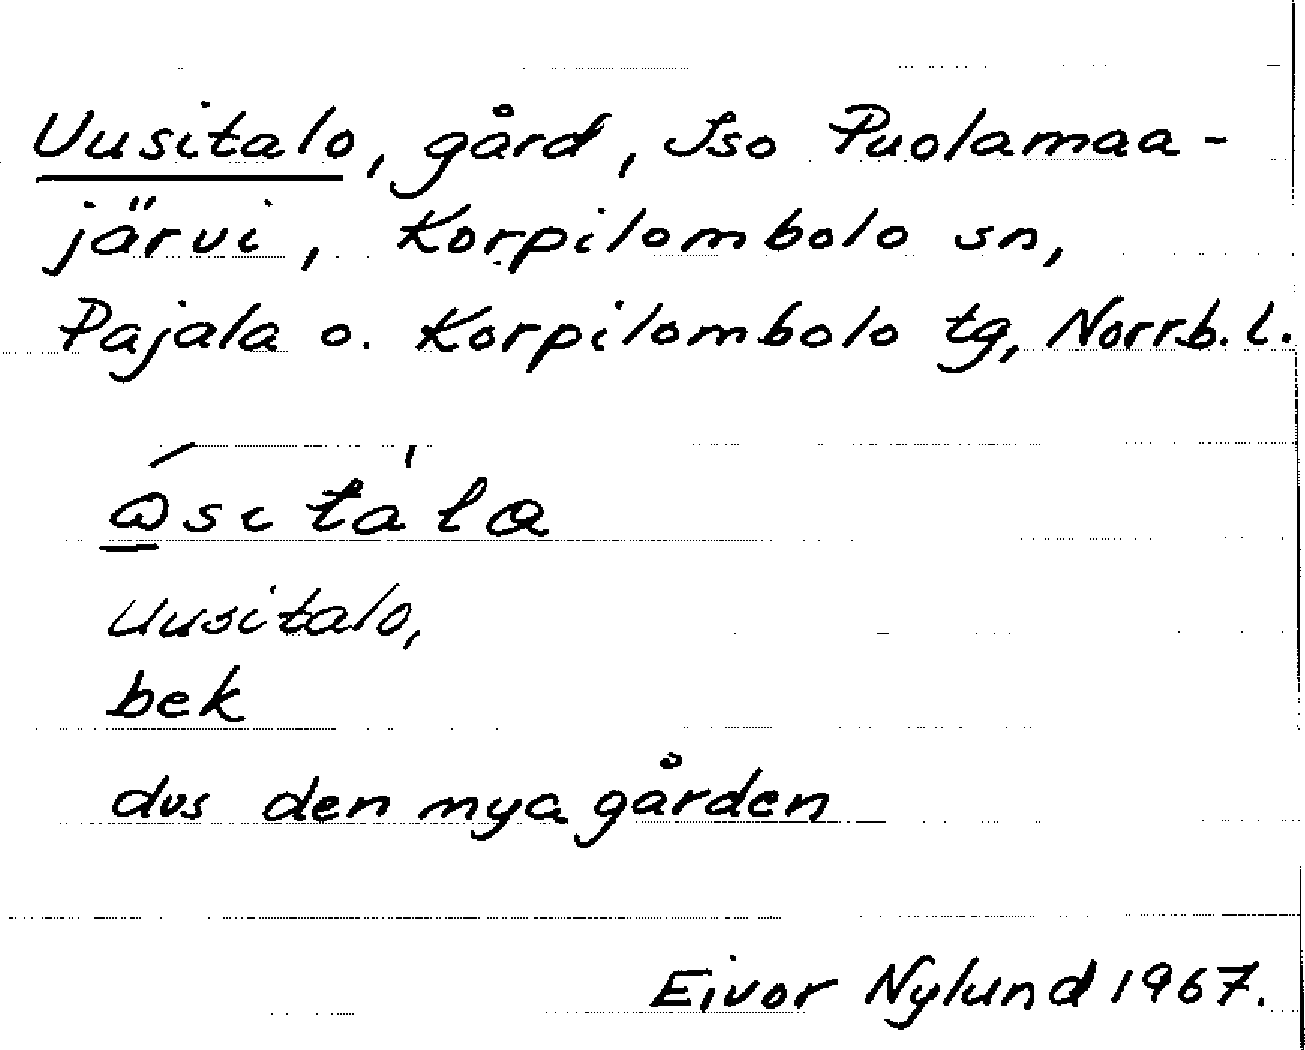 Uusitalo, gård, Iso Puolamaa-
järvi, Korpilombolo sn,
Pajala o. Korpilombolo tg, Norrb. l.
Uusitalo,
bek
dvs den nya gården
Eivor Nylund 1967.